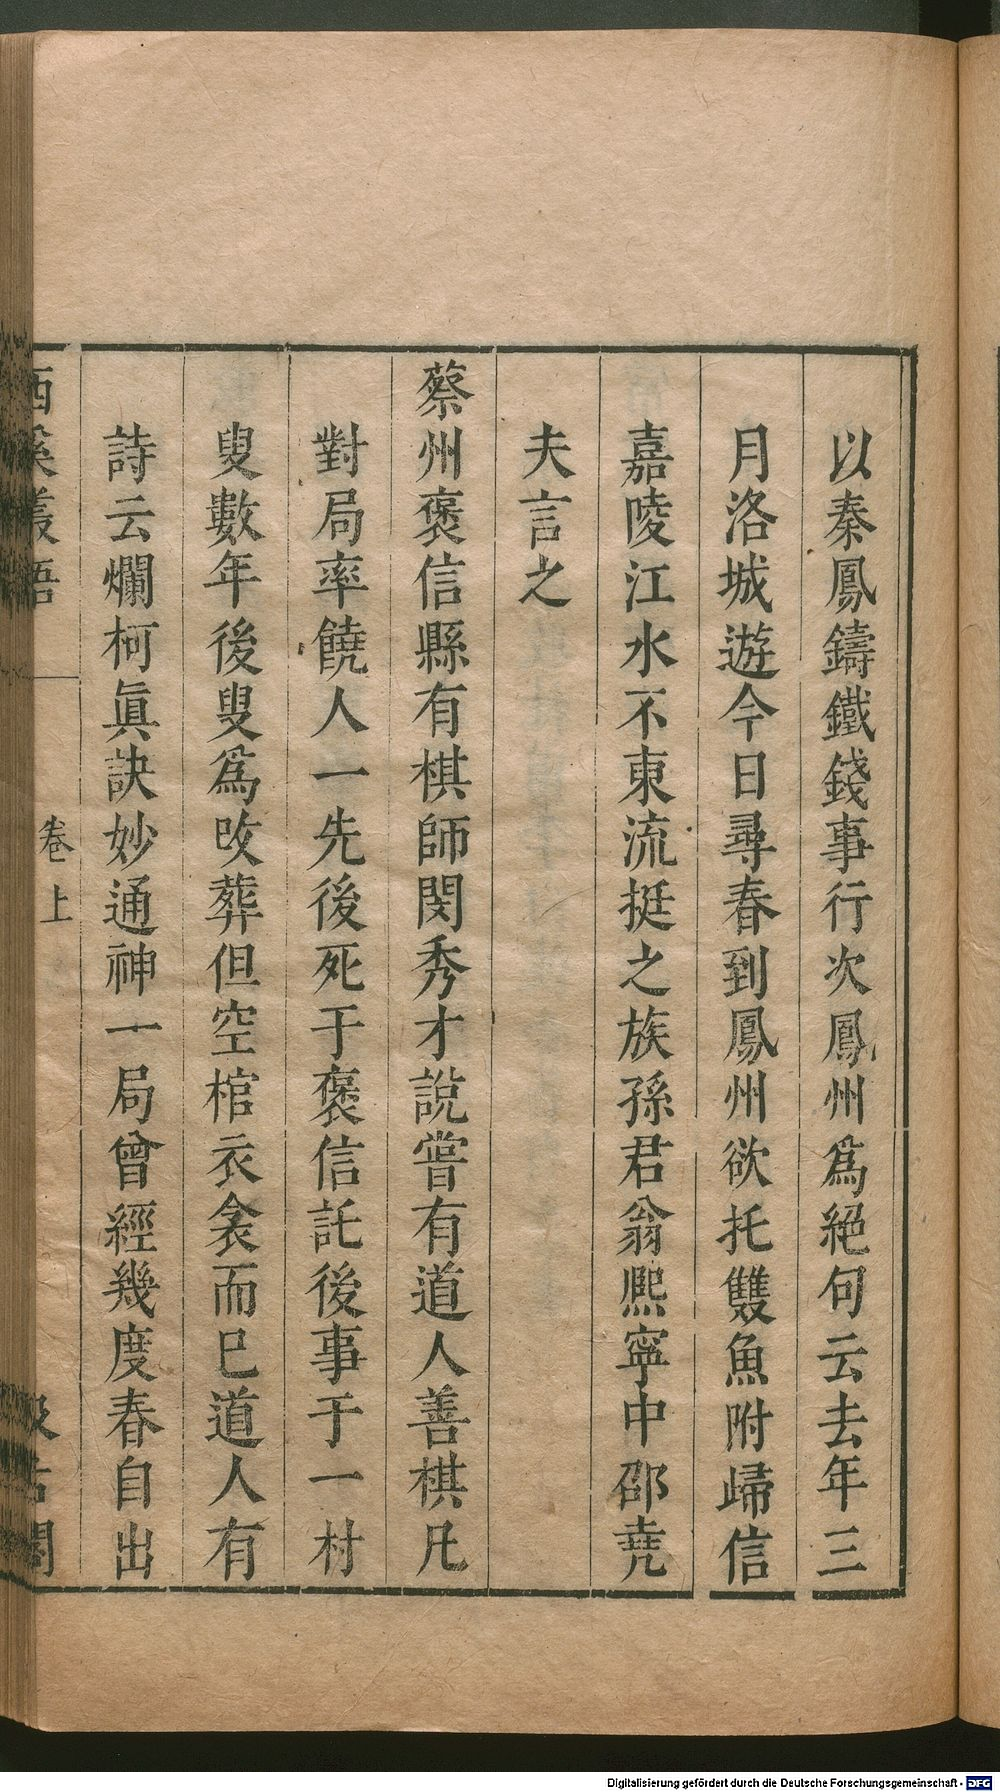 以秦鳳鑄鐵錢事行次鳳州爲絕句云去年三
月洛城遊今日尋春到鳳州欲托雙魚附歸信
嘉陵江水不東流挺之族孫君翁熈寧中邵堯
夫言之
蔡州褒信縣有棋師閔秀才說嘗有道人善棋凡
對局率饒人一先後死于褒信託後事于一村
叟數年後叟爲改葬但空棺衣衾而巳道人有
詩云爛柯眞訣妙通神一局曾經幾度春自出
西溪叢語
卷上
汲古閣
Digitalisierung gefördert durch die Deutsche Forschungsgemeinschaft - DFG